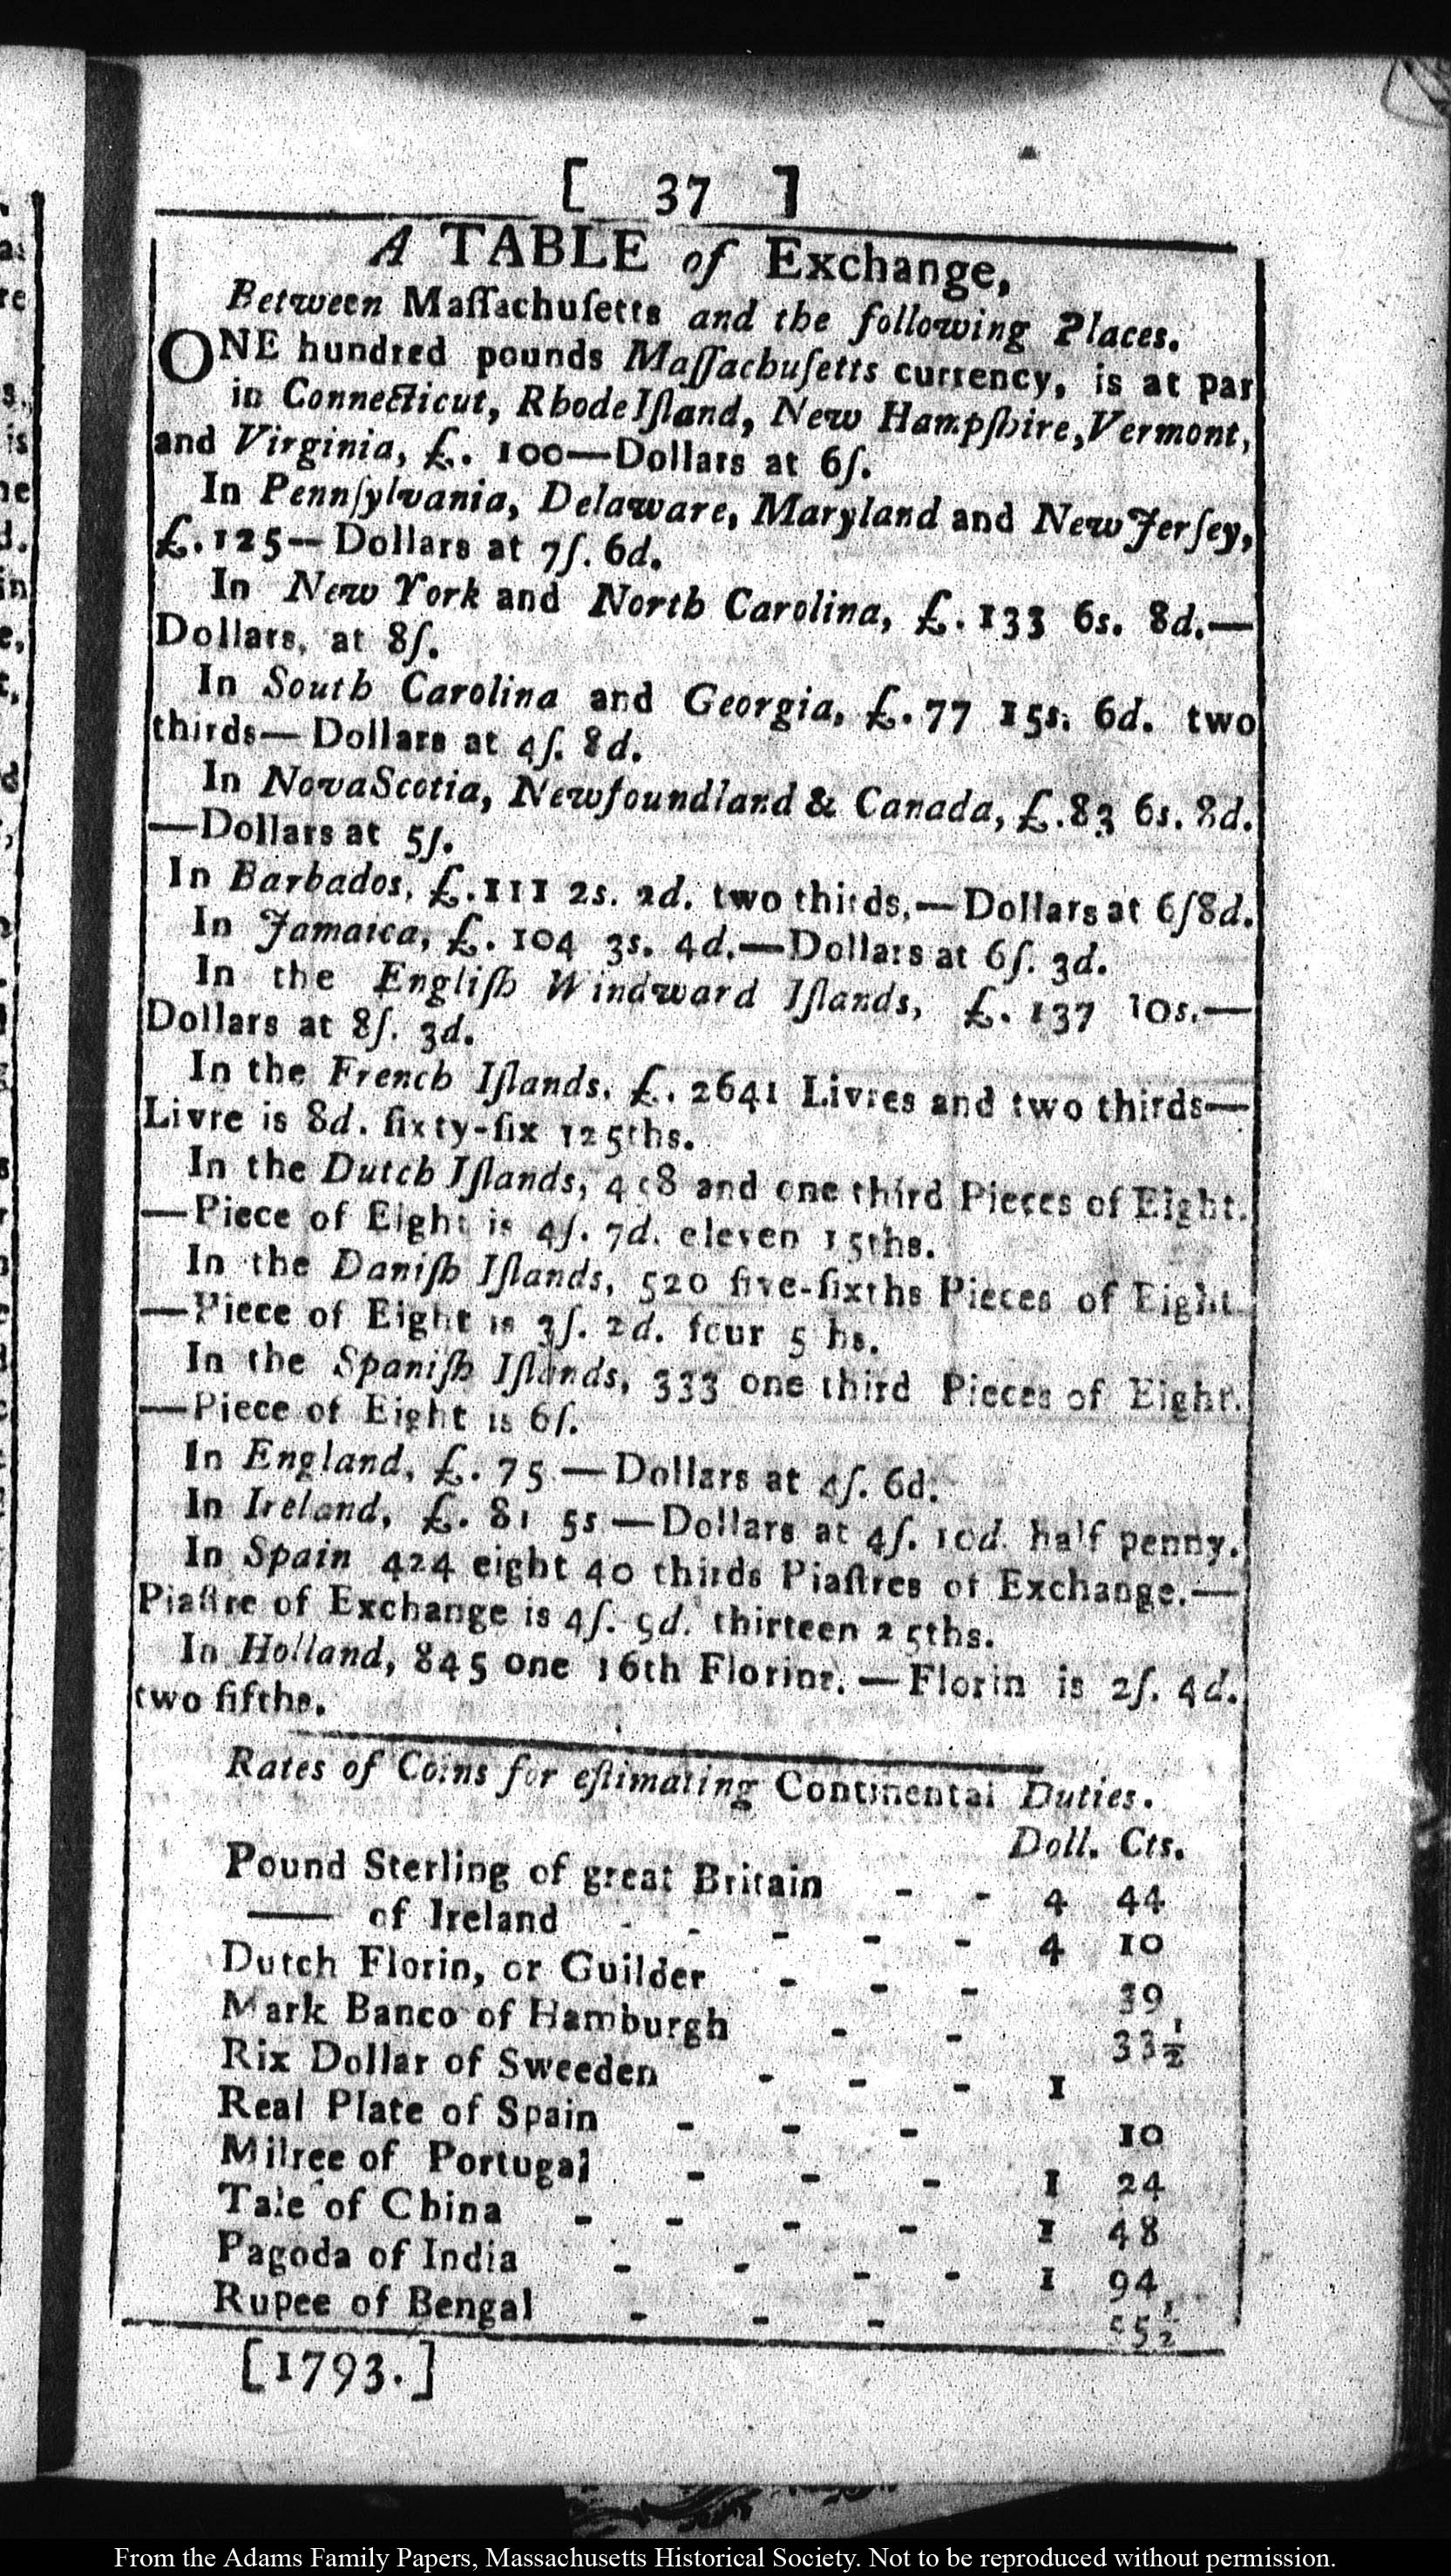 [ 37 ]
A TABLE of Exchange,
Between Maſſachuſetts and the following Places.
ONE hundred pounds Maſſachuſetts currency, is at par
in Connecticut, Rhode Iſland, New Hampſhire, Vermont,
and Virginia, £. 100—Dollars at 6ſ.
In Pennſylvania, Delaware, Maryland and New Jerſey,
£. 125—Dollars at 7ſ. 6d.
In New York and North Carolina, £. 133 6s. 8d.—
Dollars, at 8ſ.
In South Carolina and Georgia, £. 77 15s. 6d. two
thirds—Dollars at 4ſ. 8d.
In NovaScotia, Newfoundland & Canada, £. 83 6s. 8d.
—Dollars at 5ſ.
In Barbados, £. 111 2s. 2d. two thirds,—Dollars at 6ſ8d.
In Jamaica, £. 104 3s. 4d.—Dollars at 6ſ. 3d.
In the Engliſh Windward Iſlands, £. 137 10s.—
Dollars at 8ſ. 3d.
In the French Iſlands, £. 2641 Livres and two thirds—
Livre is 8d. ſixty-ſix 125ths.
In the Dutch Iſlands, 458 and one third Pieces of Eight.
—Piece of Eight is 4ſ. 7d. eleven 15ths.
In the Daniſh Iſlands, 520 five-ſixths Pieces of Eight
—Piece of Eight is 3ſ. 2d. four 5 hs.
In the Spaniſh Iſlands, 333 one third Pieces of Eight.
—Piece of Eight is 6ſ.
In England, £. 75—Dollars at 4ſ. 6d.
In Ireland, £. 81 5s—Dollars at 4ſ. 10d. half penny.
In Spain 424 eight 40 thirds Piaſtres of Exchange.—
Piaſtre of Exchange is 4ſ. 9d. thirteen 25ths.
In Holland, 845 one 16th Florins.—Florin is 2ſ. 4d.
two fifths.
Rates of Coins for eſtimating Continental Duties.
Doll. Cts.
Pound Sterling of great Britain - - 4 44
—— of Ireland - - - - - 4 10
Dutch Florin, or Guilder - - - 39
Mark Banco of Hamburgh - - 33 1/2
Rix Dollar of Sweeden - - - 1
Real Plate of Spain - - - 10
Milree of Portugal - - - 1 24
Tale of China - - - - 1 48
Pagoda of India - - - - 1 94
Rupee of Bengal - - - 55 1/2
[1793.]
From the Adams Family Papers, Massachusetts Historical Society. Not to be reproduced without permission.